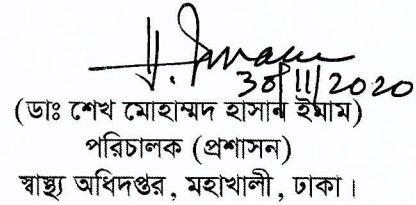 30/11/2020
(ডাঃ শেখ মোহাম্মদ হাসান ইমাম)
পরিচালক (প্রশাসন)
স্বাস্থ্য অধিদপ্তর, মহাখালী, ঢাকা।